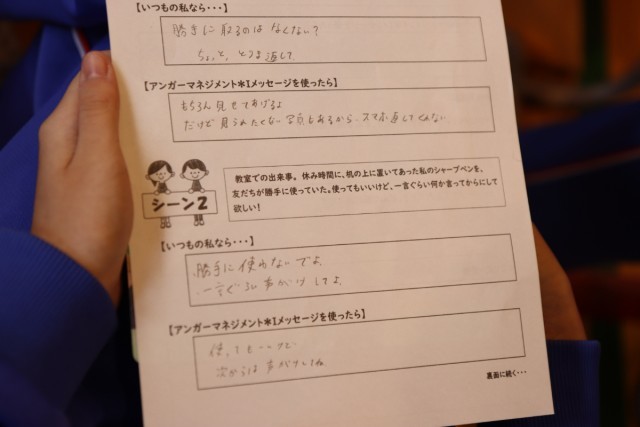 【いつもの私なら・・・】
勝手に取るのはなくない？
ちょっと、とりま返して
【アンガーマネジメント＊Iメッセージを使ったら】
もちろん見せてあげるよ
だけど見られたくない写真もあるから、スマホ返してくんない
シーン2
教室での出来事。休み時間に、机の上に置いてあった私のシャープペンを、
友だちが勝手に使っていた。使ってもいいけど、一言ぐらい何か言ってからにして
欲しい！
【いつもの私なら・・・】
勝手に使わないでよ。
一言ぐらい声かけしてよ。
【アンガーマネジメント＊Iメッセージを使ったら】
使ってもいいけど
次からは声かけしてね
裏面に続く・・・